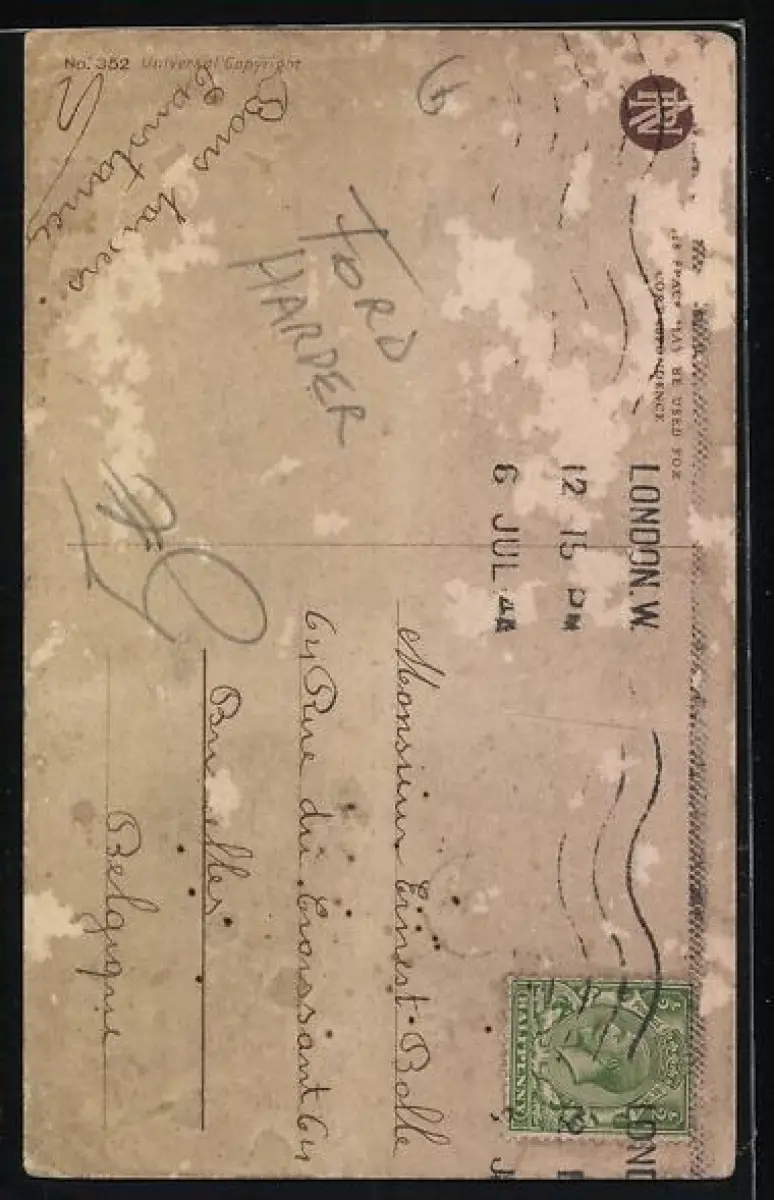 THIS SPACE MAY BE USED FOR
CORRESPONDENCE
LONDON.W
12 15 PM
6 JUL
LOND
HALFPENNY
FORD
HARPER
Bons baisers
Constance
No. 352 Universal Copyright
Monsieur Ernest Bolle
64 Rue du Croissant 64
Bruxelles
Belgique